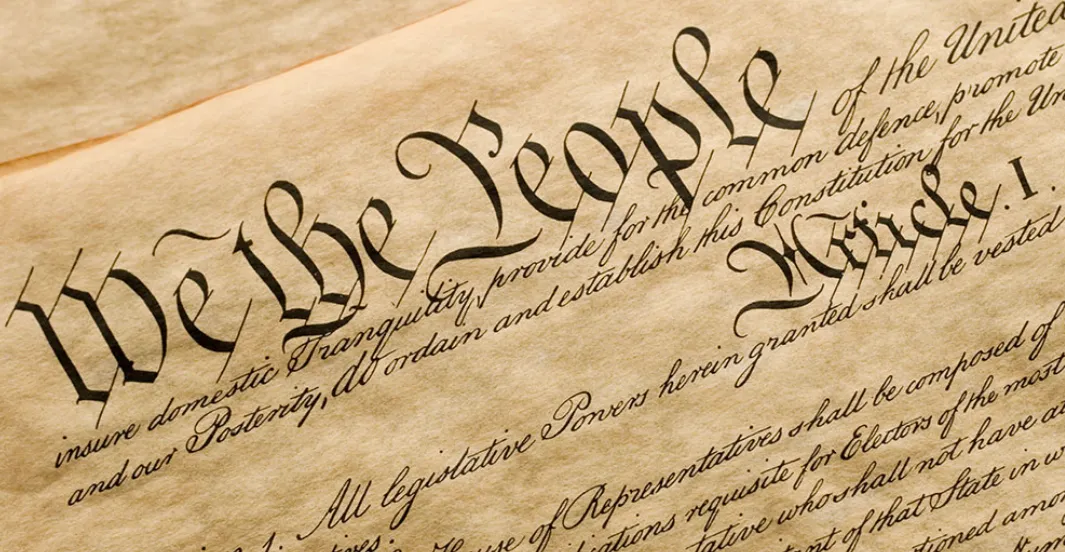 We the People of the United
insure domestic Tranquility, provide for the common defence, promote
and our Posterity, do ordain and establish this Constitution for the Un
Article. I.
All legislative Powers herein granted shall be vested
1. House of Representatives shall be composed of
requisite for Electors of the most
who shall not have at
of that State in w
amon